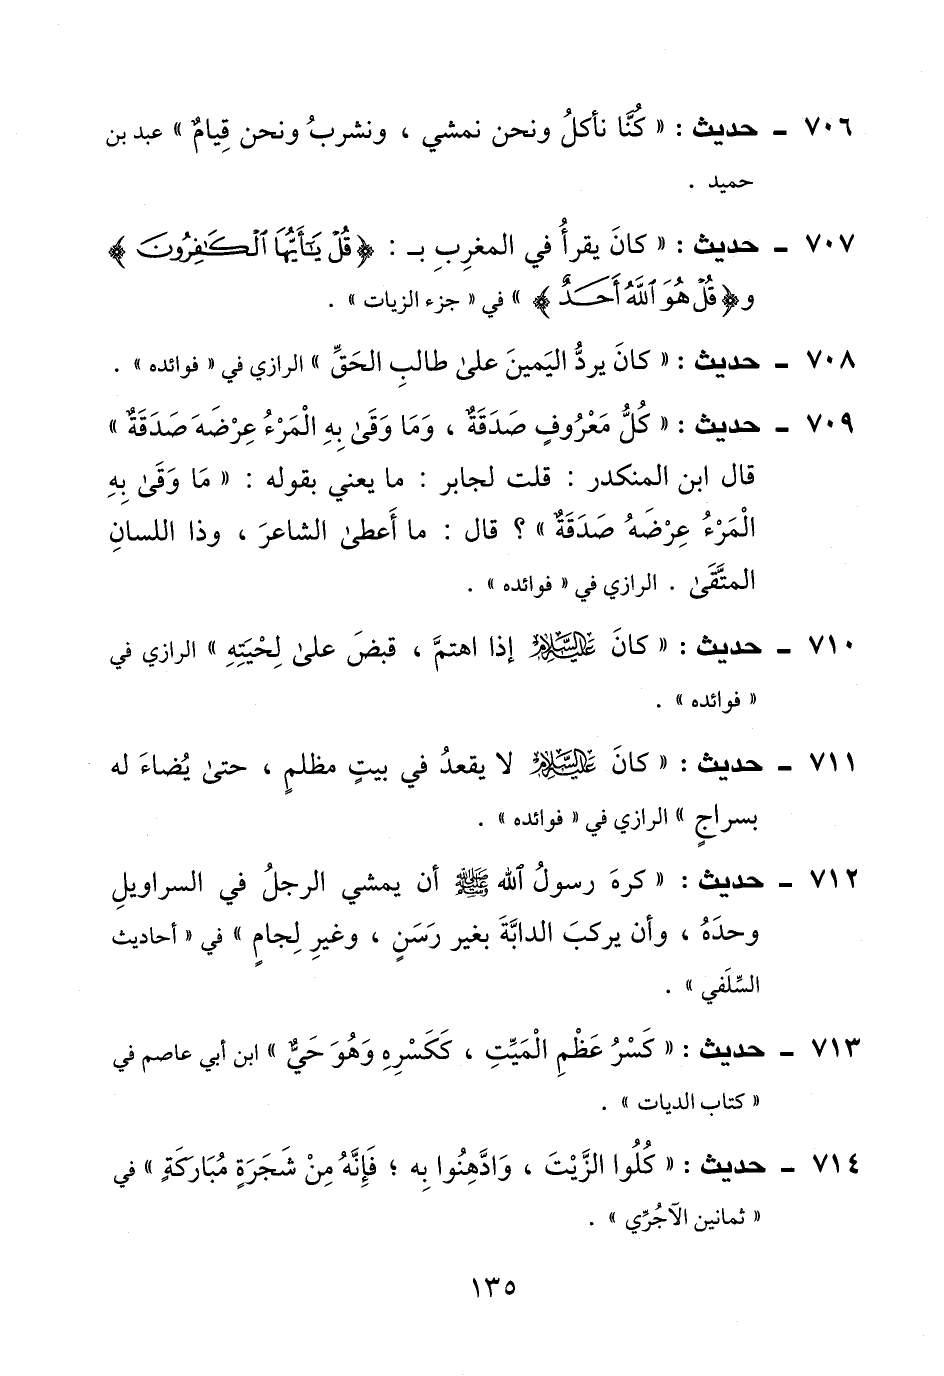 ٧٠٦ ـ حديث : « كُنَّا نأكلُ ونحن نمشي ، ونشربُ ونحن قِيامٌ » عبد بن
حميد .
٧٠٧ ـ حديث : « كانَ يقرأُ في المغرِبِ بـ : ﴿ قُلْ يَٰٓأَيُّهَا ٱلْكَٰفِرُونَ ﴾
و﴿ قُلْ هُوَ ٱللَّهُ أَحَدٌ ﴾ » في « جزء الزيات » .
٧٠٨ ـ حديث : « كانَ يردُّ اليَمينَ علىٰ طالبِ الحَقِّ » الرازي في « فوائده » .
٧٠٩ ـ حديث : « كُلُّ مَعْرُوفٍ صَدَقَةٌ ، وَمَا وَقَىٰ بِهِ الْمَرْءُ عِرْضَهَ صَدَقَةٌ »
قال ابن المنكدر : قلت لجابر : ما يعني بقوله : « مَا وَقَىٰ بِهِ
الْمَرْءُ عِرْضَهُ صَدَقَةٌ » ؟ قال : ما أَعطىٰ الشاعرَ ، وذا اللسانِ
المتَّقَىٰ . الرازي في « فوائده » .
٧١٠ ـ حديث : « كانَ عليه السلام إذا اهتمَّ ، قبضَ علىٰ لِحْيَتِهِ » الرازي في
« فوائده » .
٧١١ ـ حديث : « كانَ عليه السلام لا يقعدُ في بيتٍ مظلمٍ ، حتىٰ يُضاءَ له
بسراجٍ » الرازي في « فوائده » .
٧١٢ ـ حديث : « كرهَ رسولُ ٱلله ﷺ أن يمشي الرجلُ في السراويلِ
وحدَهُ ، وأن يركبَ الدابَّةَ بغير رَسَنٍ ، وغيرِ لِجامٍ » في « أحاديث
السِّلَفي » .
٧١٣ ـ حديث : « كَسْرُ عَظْمِ الْمَيِّتِ ، كَكَسْرِهِ وَهُوَ حَيٌّ » ابن أبي عاصم في
« كتاب الديات » .
٧١٤ ـ حديث : « كُلُوا الزَّيْتَ ، وَادَّهِنُوا بِه ؛ فَإِنَّهُ مِنْ شَجَرَةٍ مُبَارَكَةٍ » في
« ثمانين الآجُرِّي » .
١٣٥